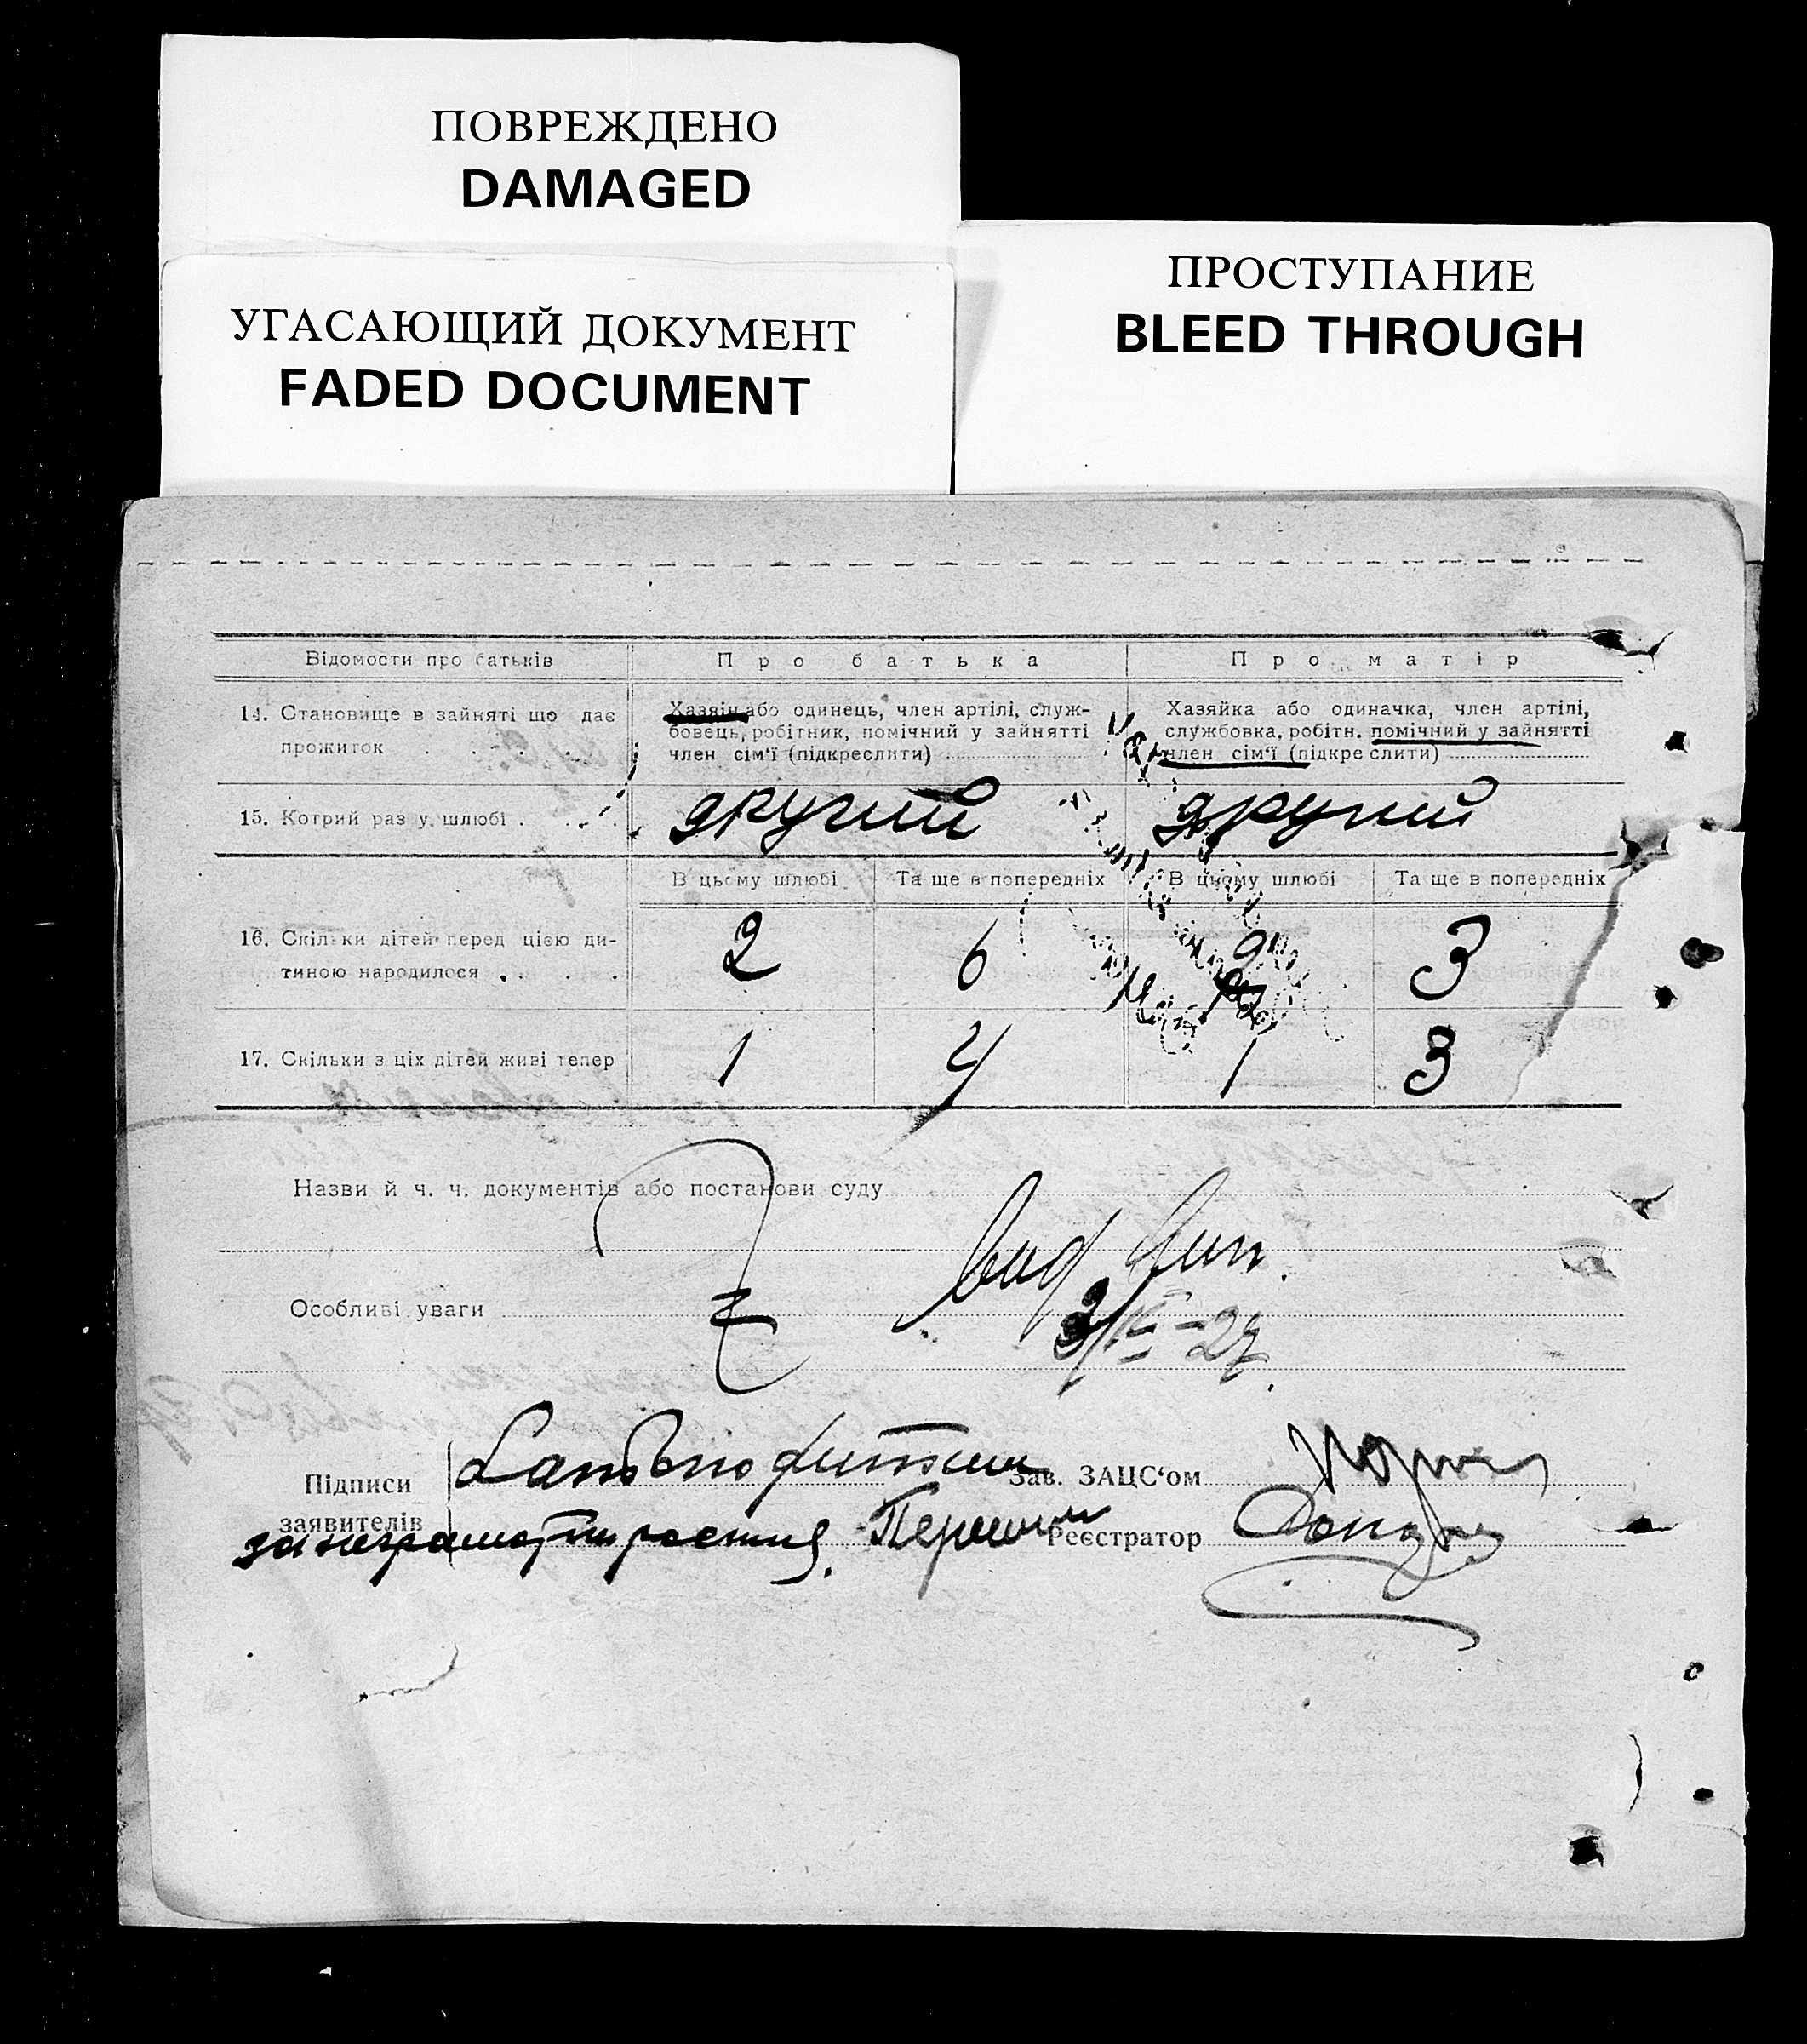 ПОВРЕЖДЕНО
DAMAGED
УГАСАЮЩИЙ ДОКУМЕНТ
FADED DOCUMENT
ПРОСТУПАНИЕ
BLEED THROUGH
Відомости про батьків
Про батька
Про матір
14. Становище в зайняті що дає
прожиток
Хазяін або одинець, член артілі, служ-
бовець, робітник, помічний у зайнятті
член сім'ї (підкреслити)
Хазяйка або одиначка, член артілі,
службовка, робітн. помічний у зайнятті
член сім'ї (підкреслити)
15. Котрий раз у шлюбі
другий
другий
В цьому шлюбі
Та ще в попередніх
В цьому шлюбі
Та ще в попередніх
16. Скільки дітей перед цією ди-
тиною народилося
2
6
2
3
17. Скільки з ціх дітей живі тепер
1
4
1
3
Назви й ч. ч. документів або постанови суду
Особливі уваги
Підписи
заявителів
Зав. ЗАЦС'ом
Реєстратор